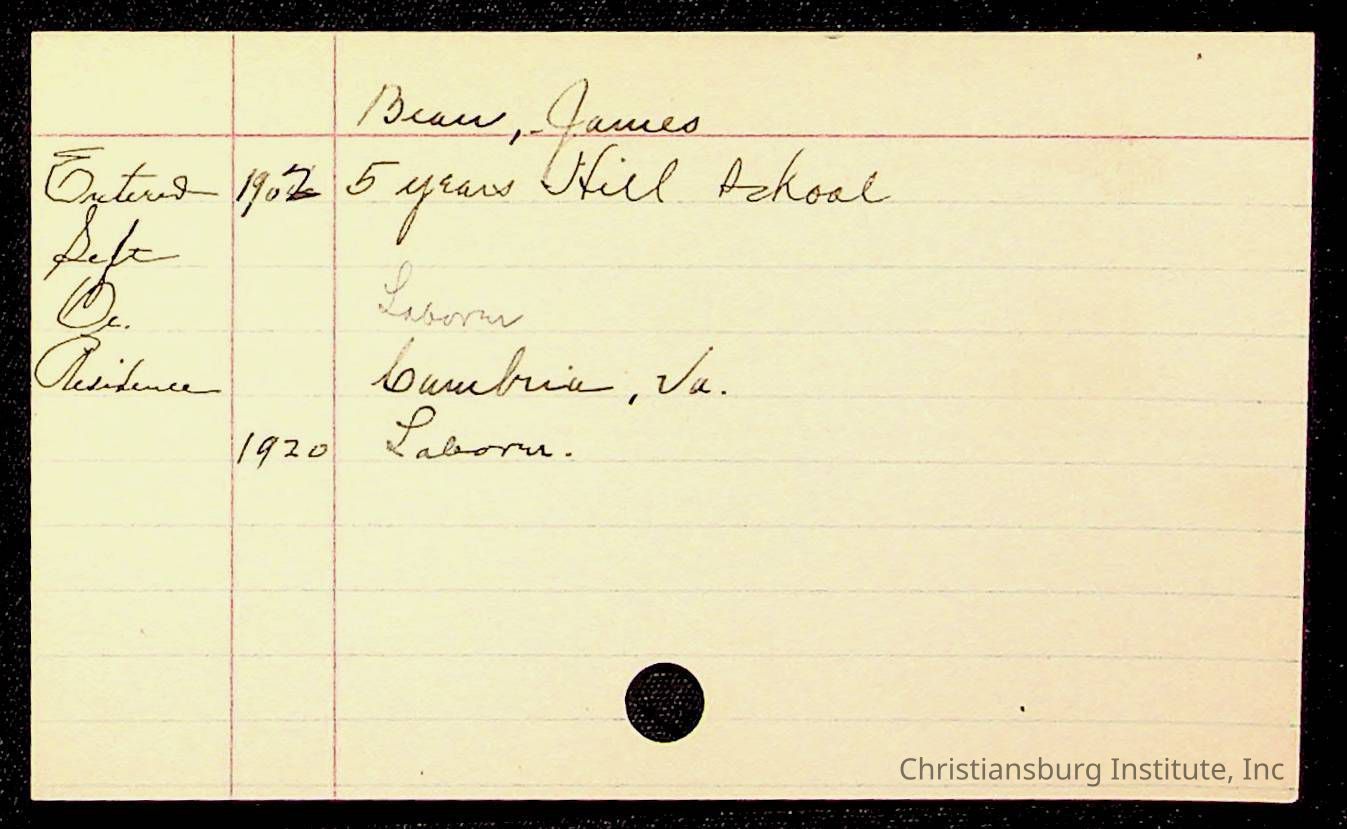 Bean, James
Entered 1902 5 years Hill School
Left
Oc. Laborer
Residence Cambria, Va.
1920 Laborer.
Christiansburg Institute, Inc